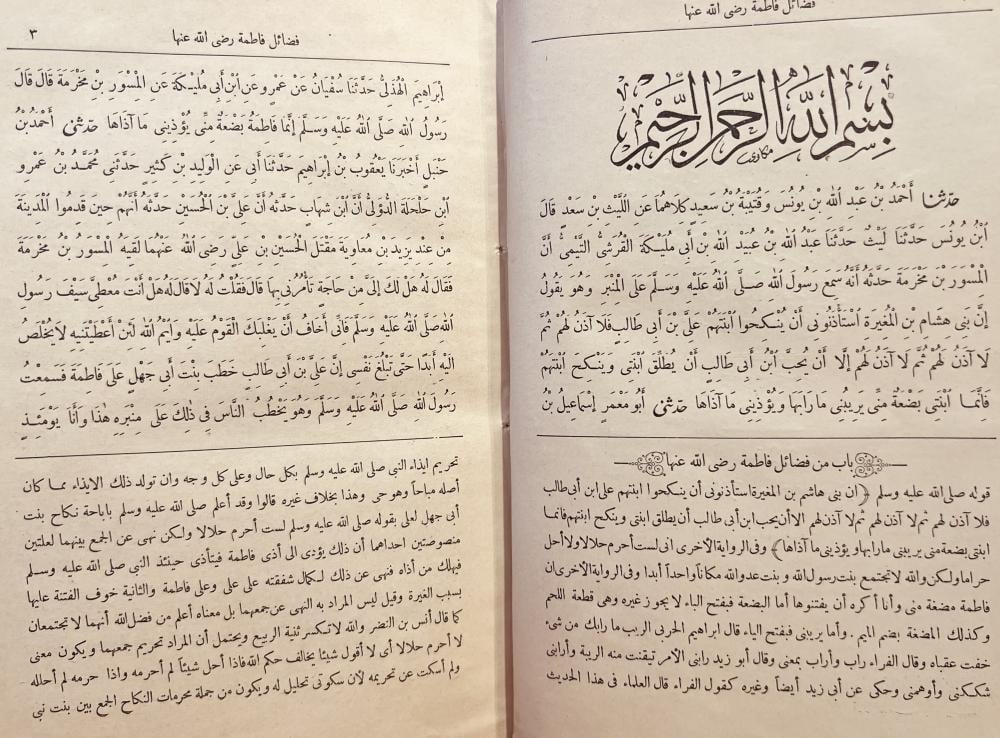 فضائل فاطمة رضى الله عنها
بِسْمِ اللهِ الرَّحْمَنِ الرَّحِيمِ
مكاوى
حدّثنا أَحْمَدُ بْنُ عَبْدِ اللهِ بْنِ يُونُسَ وَقُتَيْبَةُ بْنُ سَعِيدٍ كِلَاهُمَا عَنِ اللَّيْثِ بْنِ سَعْدٍ قَالَ
ابْنُ يُونُسَ حَدَّثَنَا لَيْثٌ حَدَّثَنَا عَبْدُ اللهِ بْنُ عُبَيْدِ اللهِ بْنِ أَبِى مُلَيْكَةَ الْقُرَشِىُّ التَّيْمِىُّ أَنَّ
الْمِسْوَرَ بْنَ مَخْرَمَةَ حَدَّثَهُ أَنَّهُ سَمِعَ رَسُولَ اللهِ صَلَّى اللهُ عَلَيْهِ وَسَلَّمَ عَلَى الْمِنْبَرِ وَهُوَ يَقُولُ
إِنَّ بَنِى هِشَامِ بْنِ الْمُغِيرَةِ اسْتَأْذَنُونِى أَنْ يُنْكِحُوا ابْنَتَهُمْ عَلِىَّ بْنَ أَبِى طَالِبٍ فَلَا آذَنُ لَهُمْ ثُمَّ
لَا آذَنُ لَهُمْ ثُمَّ لَا آذَنُ لَهُمْ إِلَّا أَنْ يُحِبَّ ابْنُ أَبِى طَالِبٍ أَنْ يُطَلِّقَ ابْنَتِى وَيَنْكِحَ ابْنَتَهُمْ
فَإِنَّمَا ابْنَتِى بَضْعَةٌ مِنِّى يَرِيبُنِى مَا رَابَهَا وَيُؤْذِينِى مَا آذَاهَا حدّثنى أَبُو مَعْمَرٍ إِسْمَاعِيلُ بْنُ
باب من فضائل فاطمة رضى الله عنها
قوله صلى الله عليه وسلم ﴿ان بنى هاشم بن المغيرة استأذنونى أن ينكحوا ابنتهم على ابن أبى طالب
فلا آذن لهم ثم لا آذن لهم ثم لا آذن لهم الا أن يحب ابن أبى طالب أن يطلق ابنتى وينكح ابنتهم فانما
ابنتى بضعة منى يريبنى مارابها ويؤذينى ما آذاها﴾ وفى الرواية الأخرى انى لست أحرم حلالا ولا أحل
حراما ولكن والله لا تجتمع بنت رسول الله وبنت عدو الله مكانا واحدا أبدا وفى الرواية الأخرى ان
فاطمة مضغة منى وأنا أكره أن يفتنوها أما البضعة فبفتح الباء لا يجوز غيره وهى قطعة اللحم
وكذلك المضغة بضم الميم . وأما يريبنى فبفتح الياء قال ابراهيم الحربى الريب ما رابك من شىء
خفت عقباه وقال الفراء راب وأراب بمعنى وقال أبو زيد رابنى الأمر تيقنت منه الريبة وأرابنى
شككنى وأوهمنى وحكى عن أبى زيد أيضاً وغيره كقول الفراء قال العلماء فى هذا الحديث
فضائل فاطمة رضى الله عنها
٣
إِبْرَاهِيمَ الْهُذَلِىُّ حَدَّثَنَا سُفْيَانُ عَنْ عَمْرٍو عَنِ ابْنِ أَبِى مُلَيْكَةَ عَنِ الْمِسْوَرِ بْنِ مَخْرَمَةَ قَالَ قَالَ
رَسُولُ اللهِ صَلَّى اللهُ عَلَيْهِ وَسَلَّمَ إِنَّمَا فَاطِمَةُ بَضْعَةٌ مِنِّى يُؤْذِينِى مَا آذَاهَا حدّثنى أَحْمَدُ بْنُ
حَنْبَلٍ أَخْبَرَنَا يَعْقُوبُ بْنُ إِبْرَاهِيمَ حَدَّثَنَا أَبِى عَنِ الْوَلِيدِ بْنِ كَثِيرٍ حَدَّثَنِى مُحَمَّدُ بْنُ عَمْرِو
ابْنِ حَلْحَلَةَ الدُّؤَلِىُّ أَنَّ ابْنَ شِهَابٍ حَدَّثَهُ أَنَّ عَلِىَّ بْنَ الْحُسَيْنِ حَدَّثَهُ أَنَّهُمْ حِينَ قَدِمُوا الْمَدِينَةَ
مِنْ عِنْدِ يَزِيدَ بْنِ مُعَاوِيَةَ مَقْتَلَ الْحُسَيْنِ بْنِ عَلِىٍّ رَضِىَ اللهُ عَنْهُمَا لَقِيَهُ الْمِسْوَرُ بْنُ مَخْرَمَةَ
فَقَالَ لَهُ هَلْ لَكَ إِلَىَّ مِنْ حَاجَةٍ تَأْمُرُنِى بِهَا قَالَ فَقُلْتُ لَهُ لَا قَالَ لَهُ هَلْ أَنْتَ مُعْطِىَّ سَيْفَ رَسُولِ
اللهِ صَلَّى اللهُ عَلَيْهِ وَسَلَّمَ فَإِنِّى أَخَافُ أَنْ يَغْلِبَكَ الْقَوْمُ عَلَيْهِ وَايْمُ اللهِ لَئِنْ أَعْطَيْتَنِيهِ لَا يُخْلَصُ
إِلَيْهِ أَبَدًا حَتَّى تَبْلُغَ نَفْسِى إِنَّ عَلِىَّ بْنَ أَبِى طَالِبٍ خَطَبَ بِنْتَ أَبِى جَهْلٍ عَلَى فَاطِمَةَ فَسَمِعْتُ
رَسُولَ اللهِ صَلَّى اللهُ عَلَيْهِ وَسَلَّمَ وَهُوَ يَخْطُبُ النَّاسَ فِى ذَلِكَ عَلَى مِنْبَرِهِ هَذَا وَأَنَا يَوْمَئِذٍ
تحريم ايذاء النبى صلى الله عليه وسلم بكل حال وعلى كل وجه وان تولد ذلك الايذاء مما كان
أصله مباحاً وهو حى وهذا بخلاف غيره قالوا وقد أعلم صلى الله عليه وسلم باباحة نكاح بنت
أبى جهل لعلى بقوله صلى الله عليه وسلم لست أحرم حلالا ولكن نهى عن الجمع بينهما لعلتين
منصوصتين احداهما أن ذلك يؤدى الى أذى فاطمة فيتأذى حينئذ النبى صلى الله عليه وسلم
فيهلك من أذاه فنهى عن ذلك لكمال شفقته على على وعلى فاطمة والثانية خوف الفتنة عليها
بسبب الغيرة وقيل ليس المراد به النهى عن جمعهما بل معناه أعلم من فضل الله أنهما لا تجتمعان
كما قال أنس بن النضر والله لا تكسر ثنية الربيع ويحتمل أن المراد تحريم جمعهما ويكون معنى
لا أحرم حلالا أى لا أقول شيئا يخالف حكم الله فاذا أحل شيئاً لم أحرمه واذا حرمه لم أحلله
ولم أسكت عن تحريمه لأن سكوتى تحليل له ويكون من جملة محرمات النكاح الجمع بين بنت نبى